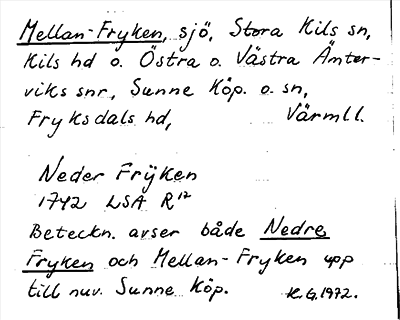 Mellan-Fryken, sjö, Stora Kils sn,
Kils hd o. Östra o. Västra Ämter-
viks snr, Sunne Köp. o. sn,
Fryksdals hd, Värml l.
Neder Frÿken
1742 LSA R¹⁷
Beteckn. avser både Nedre
Fryken och Mellan-Fryken upp
till nuv. Sunne Köp. K.G.1972.